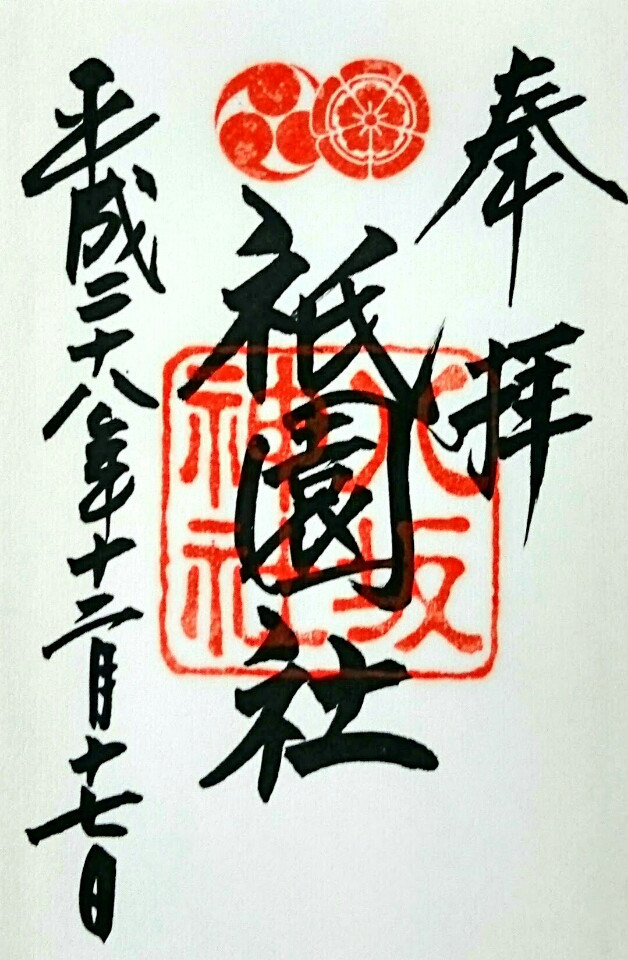 奉拝
祇園社
八坂
神社
平成二十八年十二月十七日